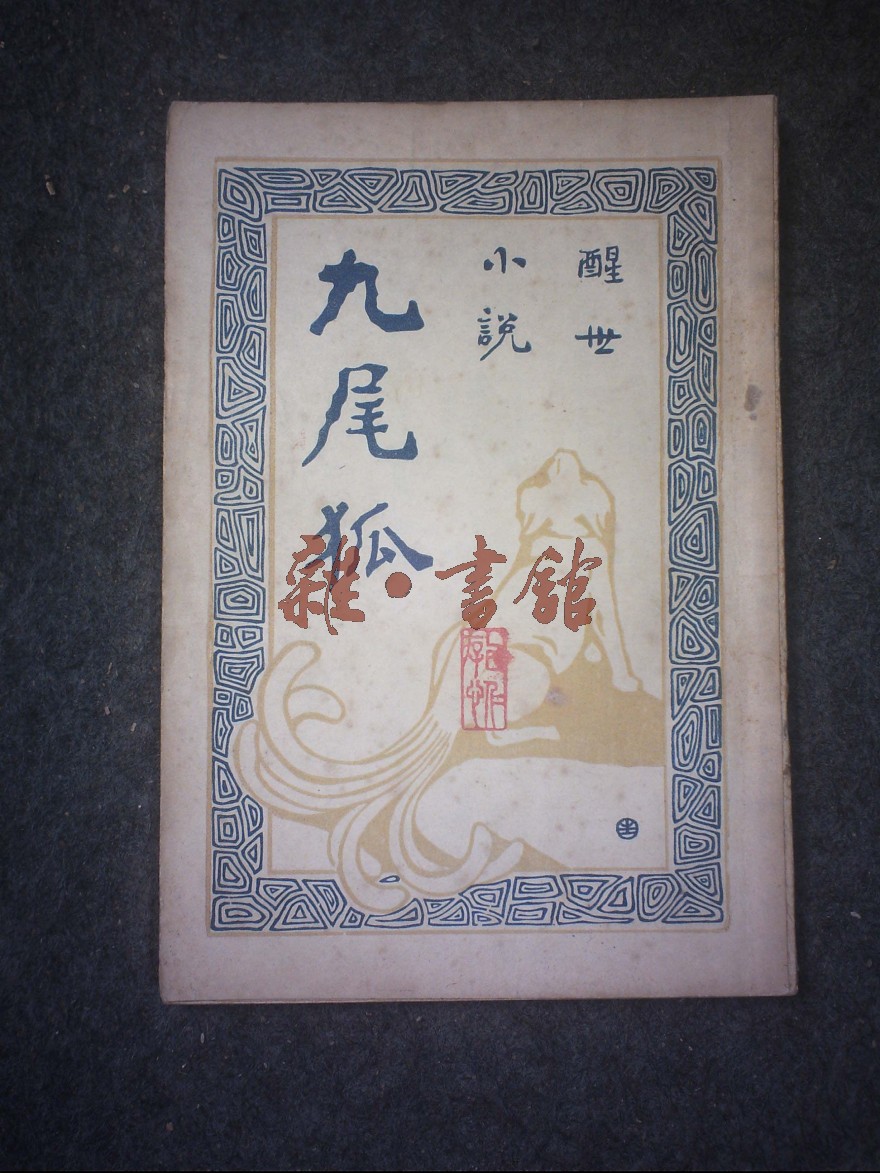 醒世
小説
九尾狐
雜•書館